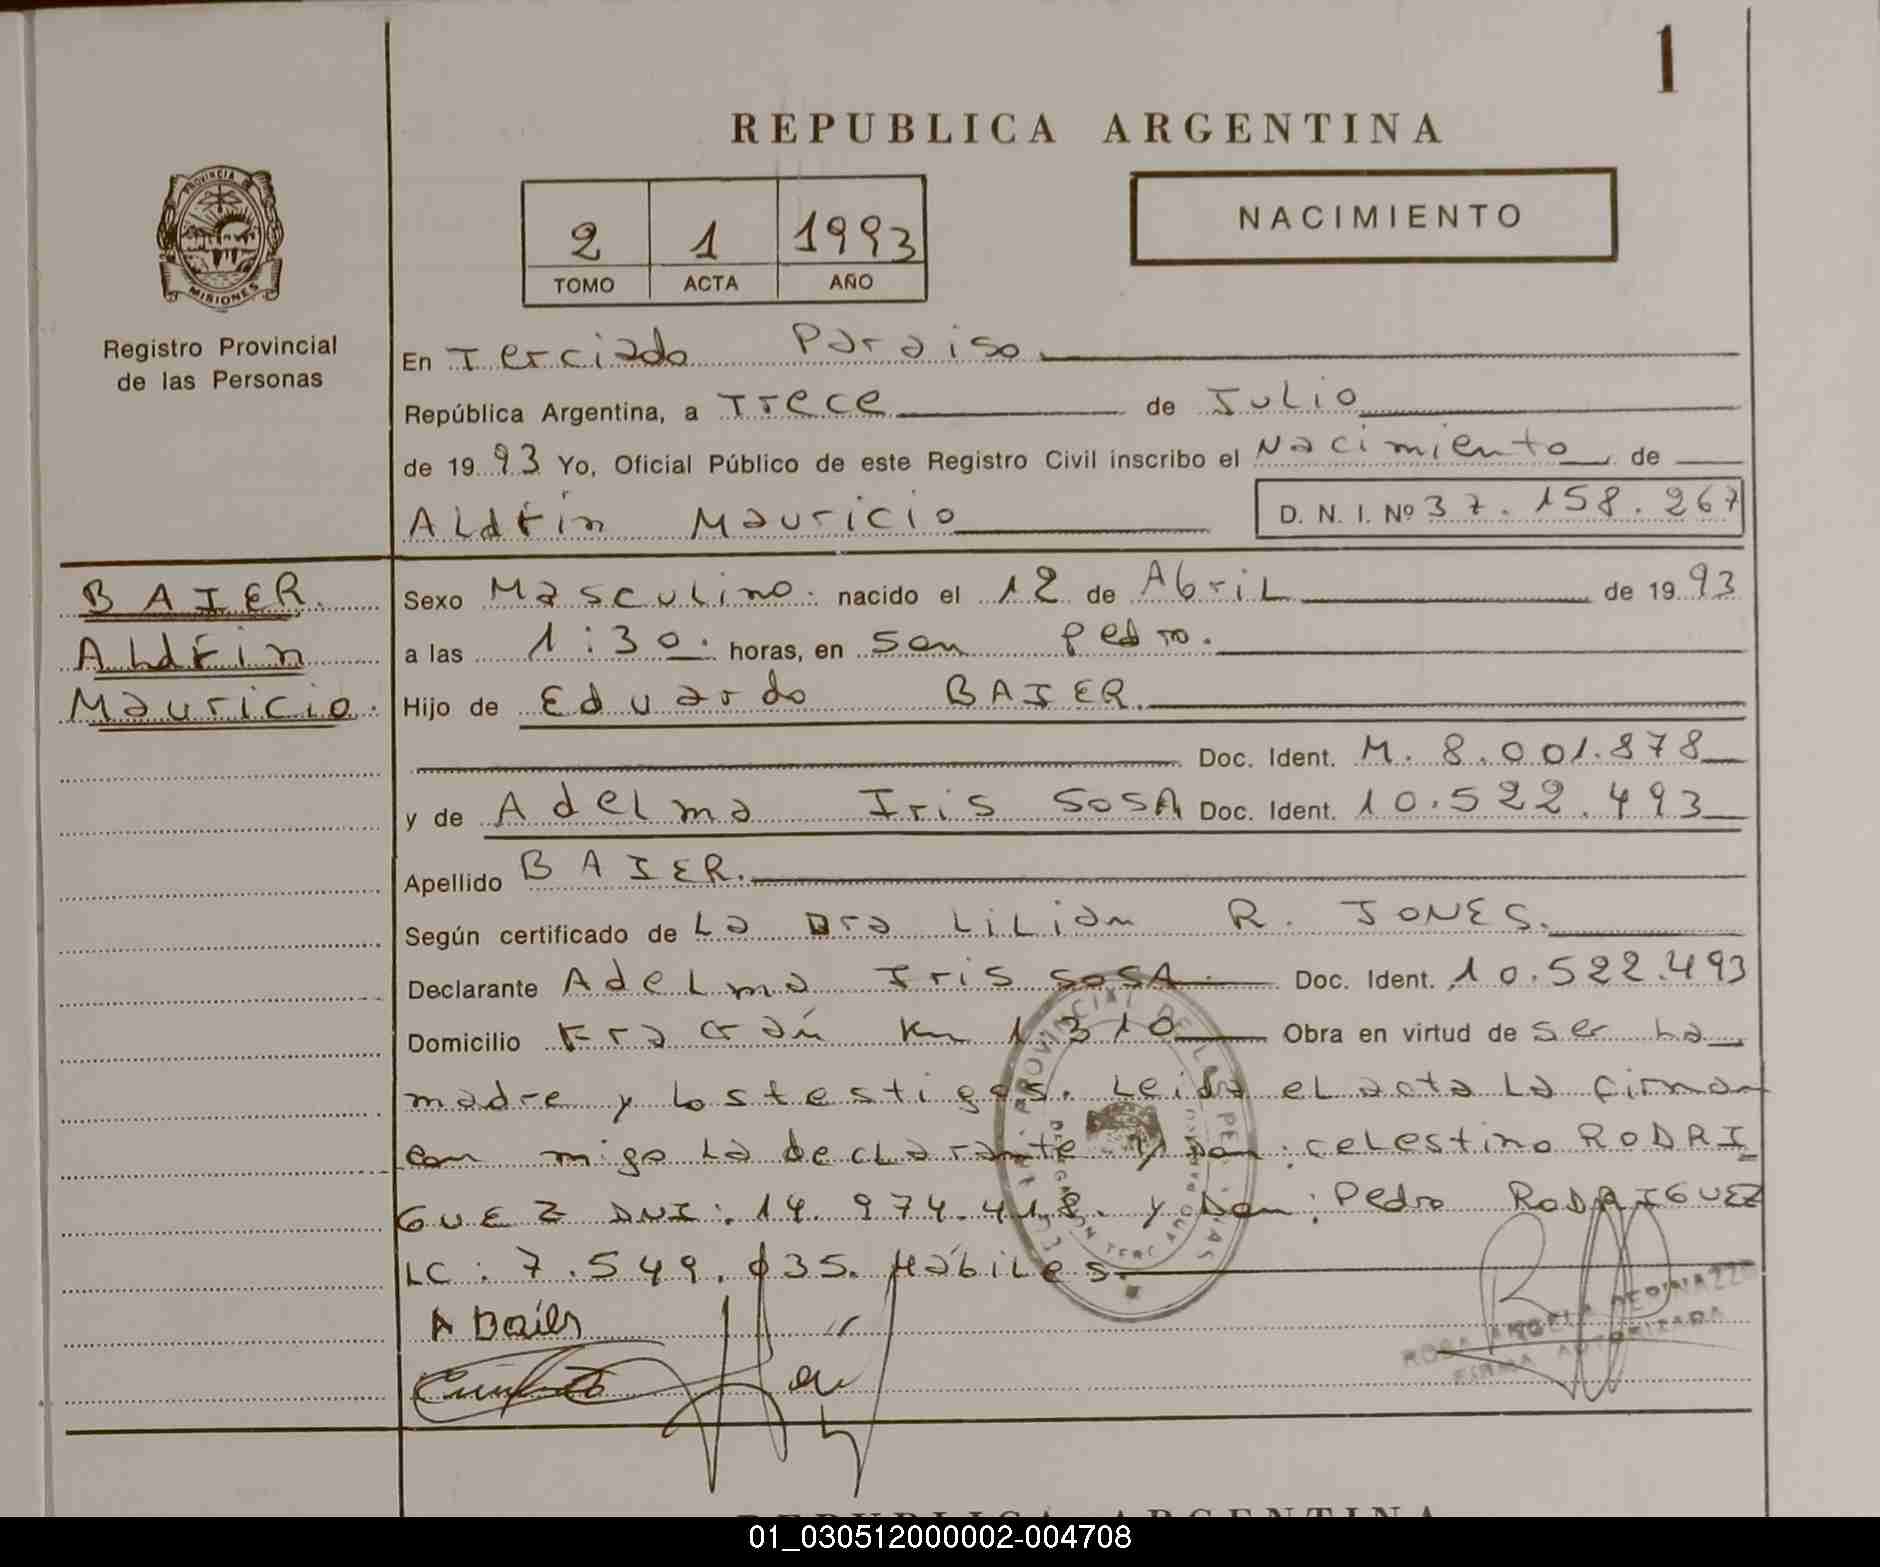 1
REPUBLICA ARGENTINA
PROVINCIA DE
MISIONES
Registro Provincial
de las Personas
2 1 1993
TOMO ACTA AÑO
NACIMIENTO
En Terciado Paraiso
República Argentina, a Trece de Julio
de 1993 Yo, Oficial Público de este Registro Civil inscribo el Nacimiento de
Aldrin Mauricio D. N. I. Nº 37.158.267
BAIER.
Aldrin
Mauricio.
Sexo Masculino. nacido el 12 de Abril de 1993
a las 1:30. horas, en San Pedro.
Hijo de Eduardo BAIER.
Doc. Ident. M. 8.001.878
y de Adelma Iris SOSA Doc. Ident. 10.522.493
Apellido BAIER.
Según certificado de La Dra Lilian R. JONES.
Declarante Adelma Iris SOSA. Doc. Ident. 10.522.493
Domicilio Fracrán Km 1.310 Obra en virtud de ser La
madre y Los testigos. Leida el acta La firman
con migo La declarante y Don: Celestino RODRI
GUEZ DNI: 14.974.418. y Don: Pedro RODRIGUEZ
LC: 7.549.035. Hábiles.
ROSA ANGELA
FIRMA AUTORIZADA
REPUBLICA ARGENTINA
01_030512000002-004708